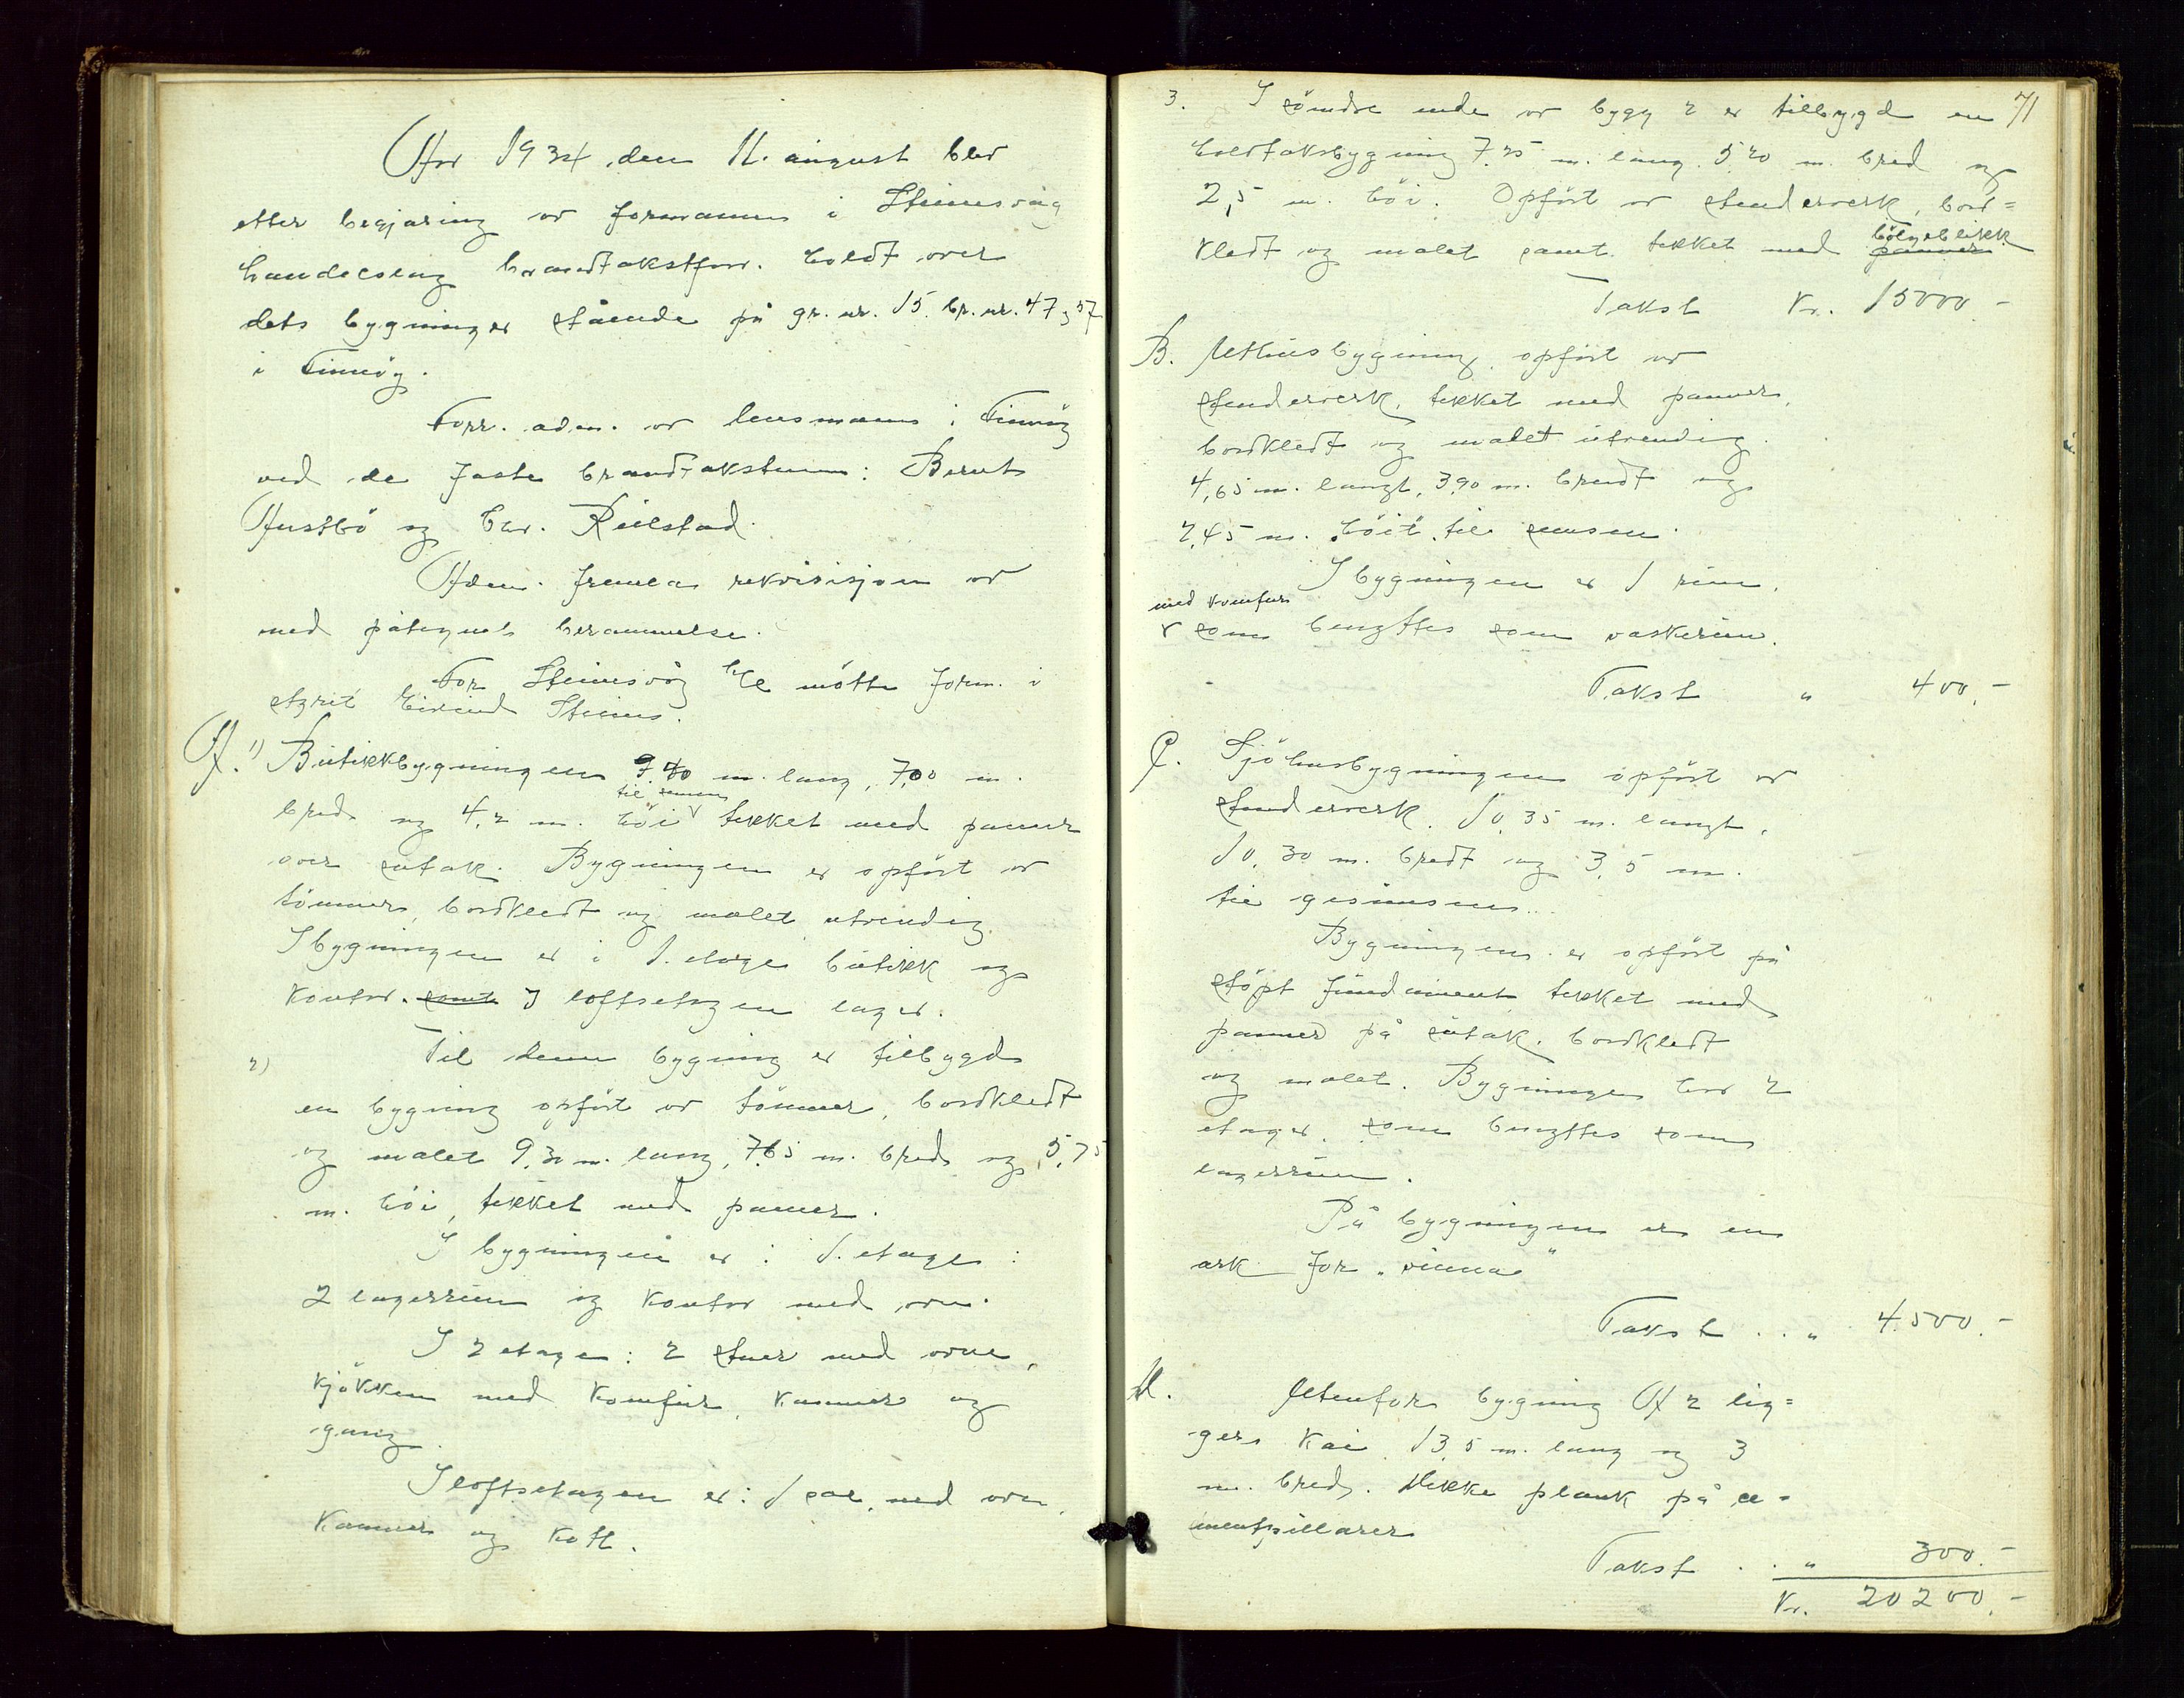 År 1934 den 11. august blev
etter begjæring av formannen i Steinsvåg
handelslag brandtakstforr. holdt over
dets bygninger stående på gr. nr. 15. br. nr. 47, 57
i Finnøy.
Forr. adm. av lensmannen i Finnøy
ved de faste brandtakstmenn: Bernt
Austbö og Chr. Reilstad.
Adm. fremla rekvisisjon av
med påtegnet berammelse.
For Steinsvåg h/l mötte form. i
styret Eivind Steinnes.
A. 1) Butikkbygningen 9.70 m. lang, 7,00 m.
til gesimsen
bred og 4,2 m. höi v tekket med panner
over sutak. Bygningen er opfört av
tömmer, bordkledt og malet utvendig.
I bygningen er i 1. etage butikk og
kontor. samt I loftsetagen lager.
2) Til denne bygning er tilbygd
en bygning opfört av tömmer, bordkledt
og malet 9,30 m. lang, 7.65 m. bred og 5,75
m. höi, tekket med panner.
I bygningen er i 1. etage:
2 lagerrum og kontor med ovn.
I 2 etage: 2 stuer med ovne,
kjökken med komfur, kammer og
gang.
I loftsetagen er: 1 sal med ovn,
kammer og kott.
71
3. I söndre ende av bygg 2 er tilbygd en
halvtaksbygning 7.25 m. lang. 5.20 m. bred og
2,5 m. höi. Opfört av stenderverk, bord=
bölgeblikk
kledt og malet samt tekket med panner
Takst Kr. 15000.-
B. Uthusbygning opfört av
stenderverk, tekket med panner,
bordkledt og malet utvendig.
4,65 m. langt, 3,90 m. bredt og
2,45 m. höit til gesimsen.
I bygningen er 1 rum,
med komfur
v som benyttes som vaskerum.
Takst " 400.-
C. Sjöhusbygningen opfört av
stenderverk. 10,35 m. langt,
10,30 m. bredt og 3,5 m.
til gesimsen.
Bygningen er opfört på
stöpt fundament tekket med
panner på sutak. bordkledt
og malet. Bygningen har 2
etager. som benyttes som
lagerrum.
På bygningen er en
ark for "vinna"
Takst . . " 4500.-
D. Utenfor bygning A 2 lig=
ger kai 13,5 m. lang og 3
m. bred. Dekke plank på ce=
mentpillarer
Takst . . " 300.-
Kr. 20200.-